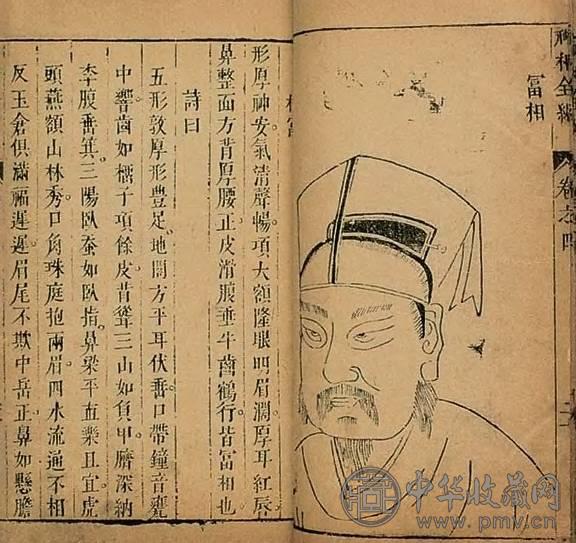 神相全編 卷之四
富相
相富
形厚神安氣清聲暢項大額隆眼明眉濶厚耳紅唇
鼻整面方背厚腰正皮滑腹垂牛齒鶴行皆富相也
詩曰
五形敦厚形豐足地閣方平耳伏垂口帶鐘音甕
中響齒如榴子項餘皮背聳三山如負甲臍深納
李腹垂箕三陽臥蚕如臥指鼻梁平直樂且宜虎
頭燕額山林秀口角珠庭抱兩眉四水流通不相
反玉倉俱滿福遲遲眉尾不欺中岳正鼻如懸膽
中华收藏网
www.pmv.cn